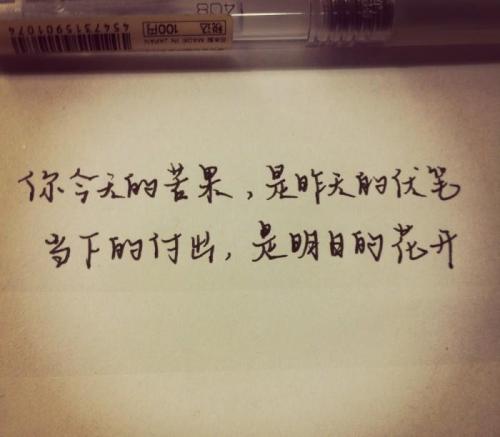 1408
税込 100円
MADE IN JAPAN
4547315901074
你今天的苦果，是昨天的伏笔
当下的付出，是明日的花开